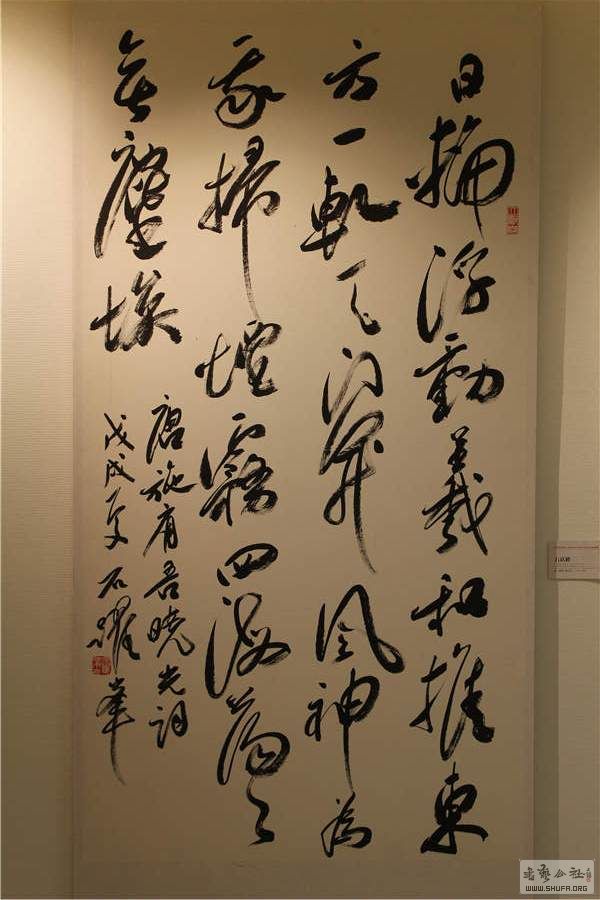 日輪浮動羲和推東
方一軋天门開風神為
我掃煙霧四海蕩々
無塵埃
唐施肩吾曉光詞
戊戌夏石躍峯
書藝公社
WWW.SHUFA.ORG